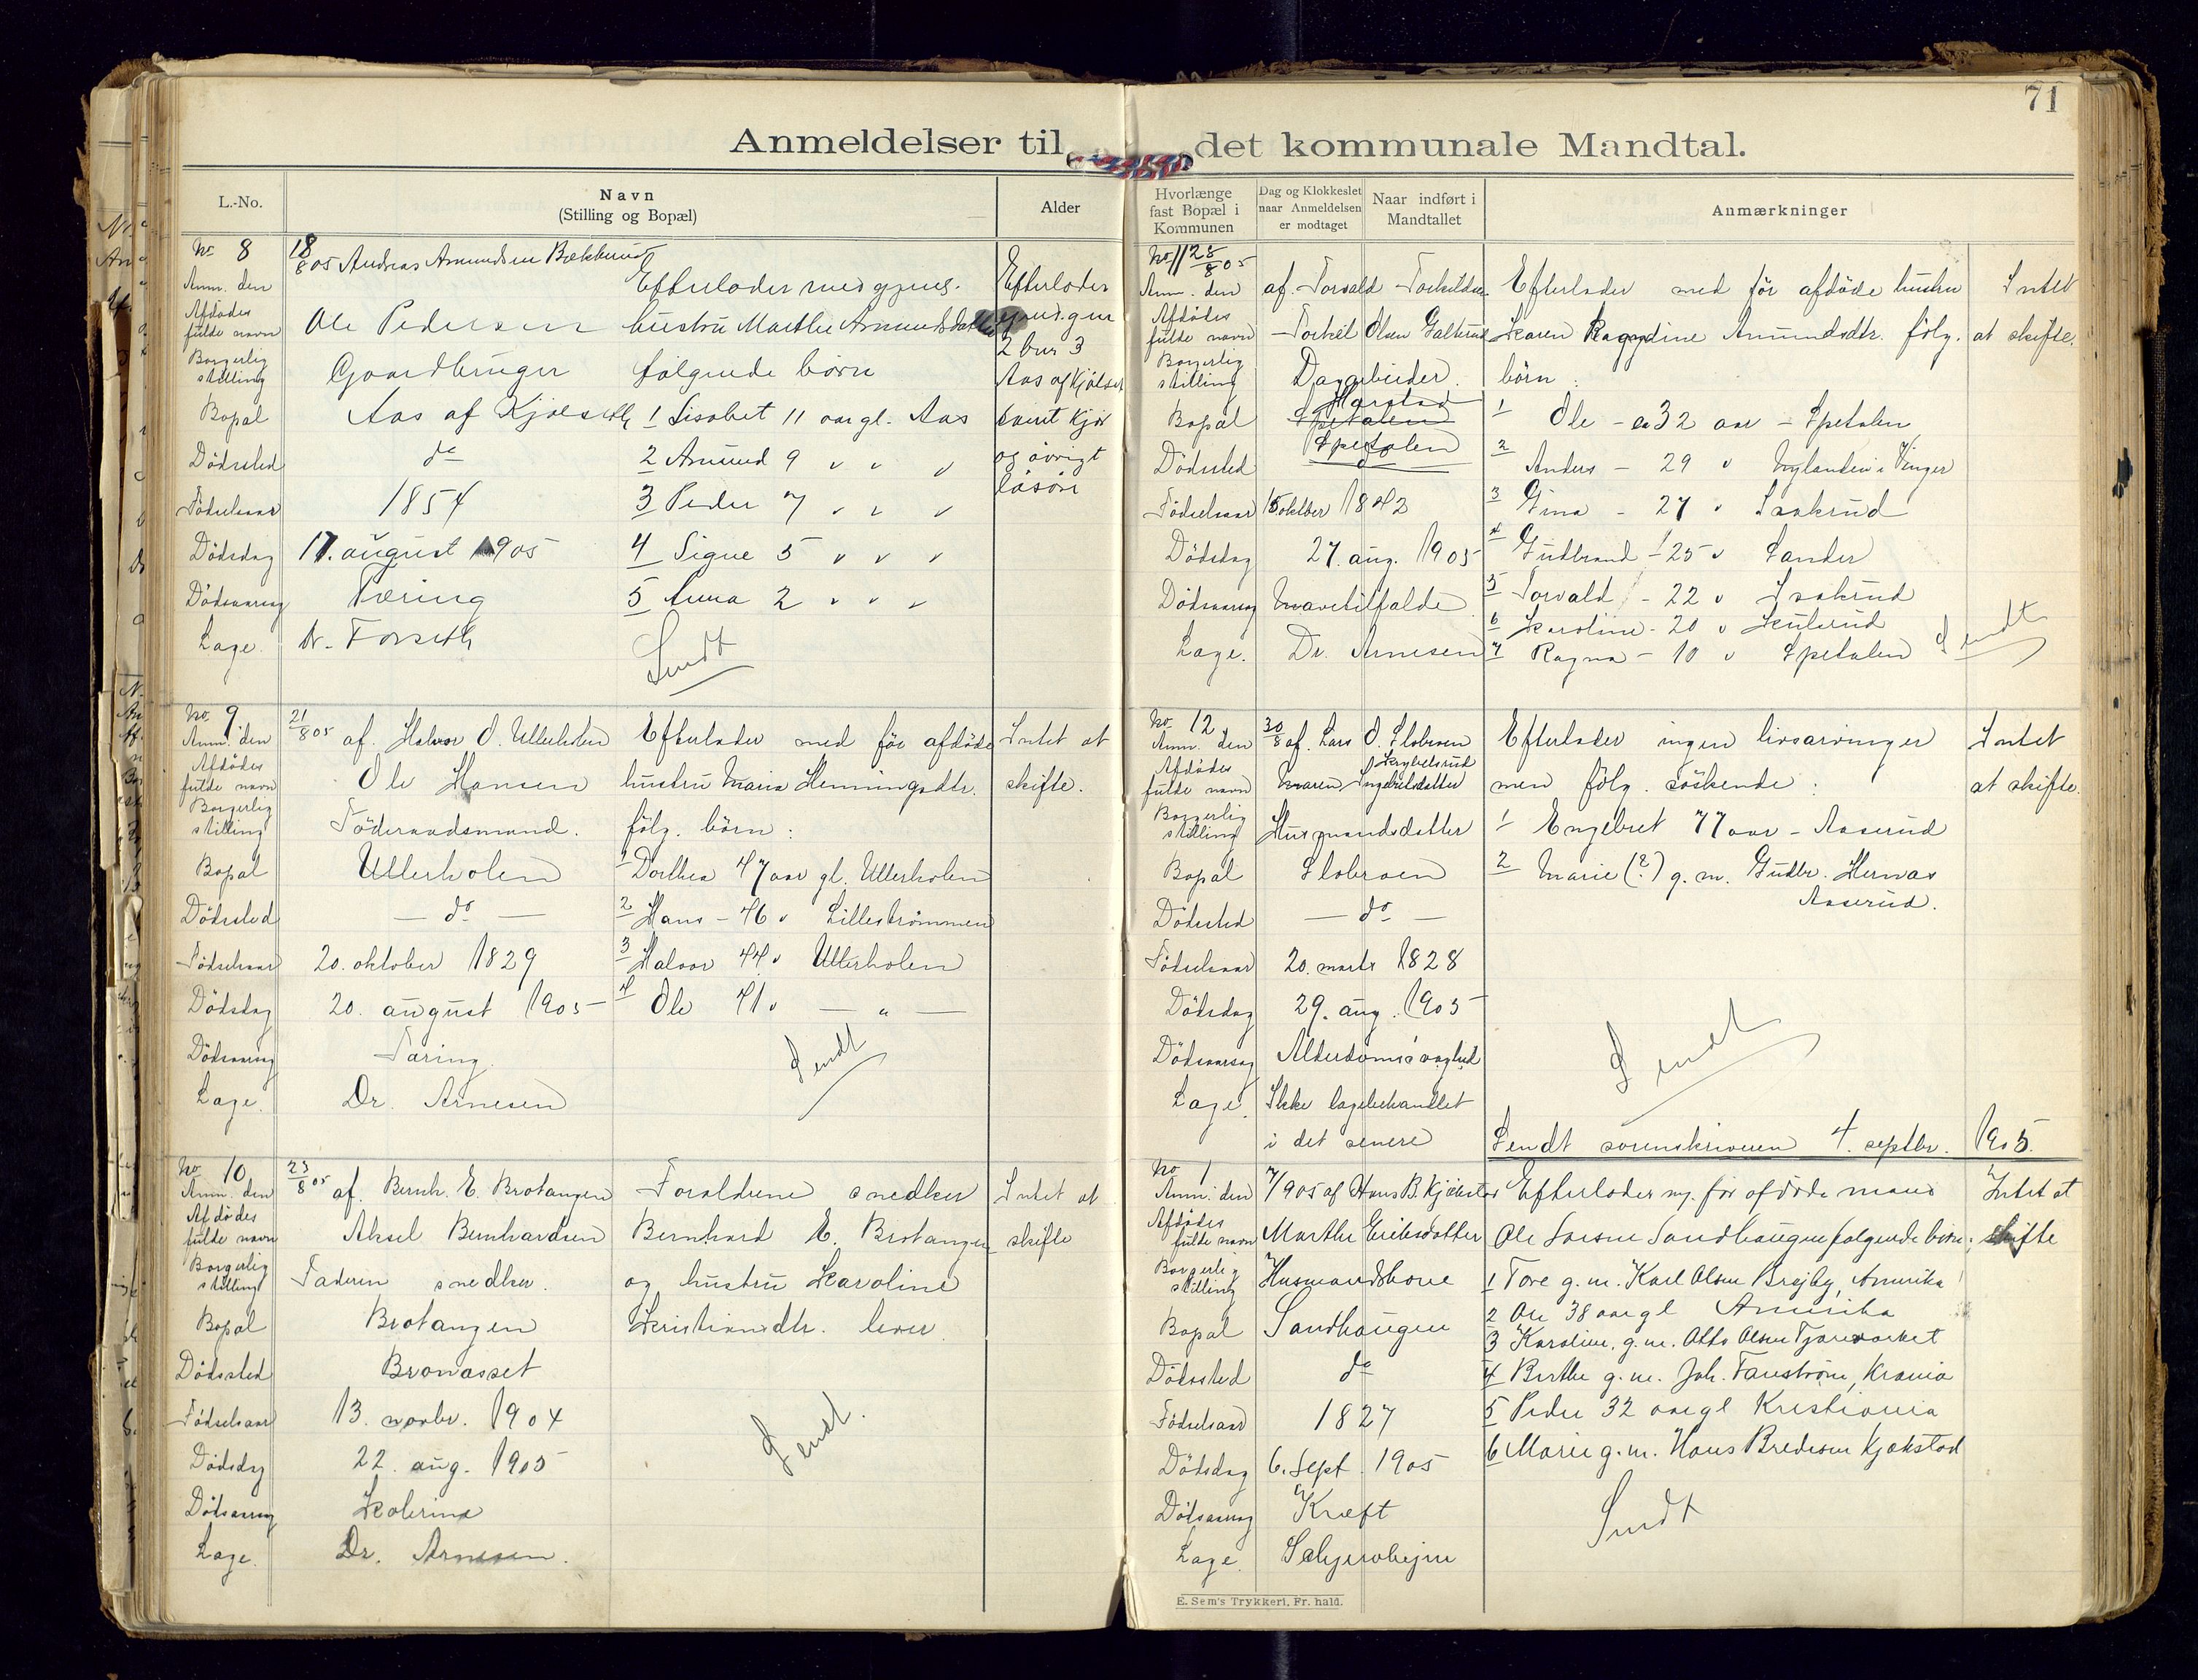 71
Anmeldelser til det kommunale Mandtal.
L.-No.
Navn
(Stilling og Bopæl)
Alder
Hvorlænge
fast Bopæl i
Kommunen
Dag og Klokkeslet
naar Anmeldelsen
er modtaget
Naar indført i
Mandtallet
Anmærkninger
No 8 18/8 05 Andreas Amundsen
Anm. den Efterlader med gjenl. Efterlader
Afdødes
fulde navn Ole Pedersen hustru Marthe Amundsdatter
2 bnr 3
Borgerlig
stilling Gaardbruger følgende børn Aas af Kjølseth
Bopæl Aas af Kjølseth 1 Lisabet 11 aar gl. Aas samt
Dödssted do 2 Amund 9 " " " og øvrigt
løsøre
Födselsaar 1854 3 Peder 7 " " "
Dödsdag 17. august 1905 4 Signe 5 " " "
Dödsaarsag Tæring 5 Anna 2 " " "
Læge. Dr. Forseth
Sendt
No 9. 21/8 05 af. Halvor O. Ullerholen Efterlader med før afdöde Intet at
Anm. den
Afdødes
fulde navn Ole Hansen hustru Maria Henningsdtr. skifte.
Borgerlig
stilling Föderaadsmand. fölg. börn:
Bopæl Ullerholen 1 Dorthea 47 aar gl. Ullerholen
Dödssted — do — 2 Hans - 46 " Lilleströmmen
Födselsaar 20. oktober 1829 3 Halvor 44 " Ullerholen
Dödsdag 20. august 1905 4 Ole 41 " — " —
Dödsaarsag Tæring.
Sendt
Læge. Dr. Arnesen
No 10. 23/8 05 af. Bernh. E. Brotangen Forældrene snedker Intet at
Anm. den
Afdødes
fulde navn Aksel Bernhardsen Bernhard E. Brotangen skifte
Borgerlig
stilling Faderen snedker. og hustru Karoline
Bopæl Brotangen Kristiansdtr. lever.
Dödssted Bronæsset
Födselsaar 13. novbr. 1904
Dödsdag 22. aug. 1905
Sendt.
Dödsaarsag Kolerina
Læge. Dr. Arnesen.
No 11 28/8 05
Anm. den af. Torvald Torkildsen Efterlader med før afdöde hustru Intet
Afdødes
fulde navn Torkel Olsen Galterud Karen Ragndine Amundsdtr. fölg. at skifte.
Borgerlig
stilling Dagarbeider. börn:
Harstad
Bopæl Spetalen 1 Ole - ca 32 aar - Spetalen
Spetalen
Dödssted 2 Anders - 29 " Nylænden i Vinger
Födselsaar 15 oktober 1842 3 Gina - 27 " Saakrud
Dödsdag 27. aug. 1905 4 Gudbrand - 25 " Sander
Dödsaarsag Mavetilfælde 5 Torvald - 22 " Saakrud
6 Karoline - 20 " Kulerud
Læge. Dr. Arnesen 7 Ragna - 10 " Spetalen Sendt
No 12 30/8 af. Lars O. Slobraaen Efterlader ingen livsarvinger Intet
Anm. den
Afdødes
fulde navn Maren Ingebretsdatter men fölg. söskende: at skifte.
Borgerlig
stilling Husmandsdatter 1 Engebret 77 aar - Aaserud
Bopæl 2 Marie (?) g. m. Gudbr. Hernæs
Aaserud.
Dödssted — do —
Födselsaar 20. marts 1828
Dödsdag 29. aug. 1905
Dödsaarsag Alderdomssvaghed
Sendt
Læge. Ikke lægebehandlet
i det senere Sendt sorenskriveren 4. septbr. 1905.
No 1
Anm. den 7/9 05 af Hans B. Kjøkstad Efterlader m. før afdøde mand Intet at
Afdødes
fulde navn Marthe Eriksdatter Ole Larsen Sandhaugen følgende børn: skifte
Borgerlig
stilling Husmandskone 1 Tore g. m. Karl Olsen Brejby, Amerika
Bopæl Sandhaugen 2 Ole 38 aar gl Amerika
3 Karoline, g. m. Otto Olsen
Dödssted do 4 Berthe g. m. Joh. Fanström, Krania
Födselsaar 1827 5 Peder 32 aar gl Kristiania
Dödsdag 6. Sept. 1905 6 Marie g. m. Hans Bredesen Kjøkstad
Dödsaarsag Kræft
Sendt
Læge.
E. Sem's Trykkeri, Fr. hald.